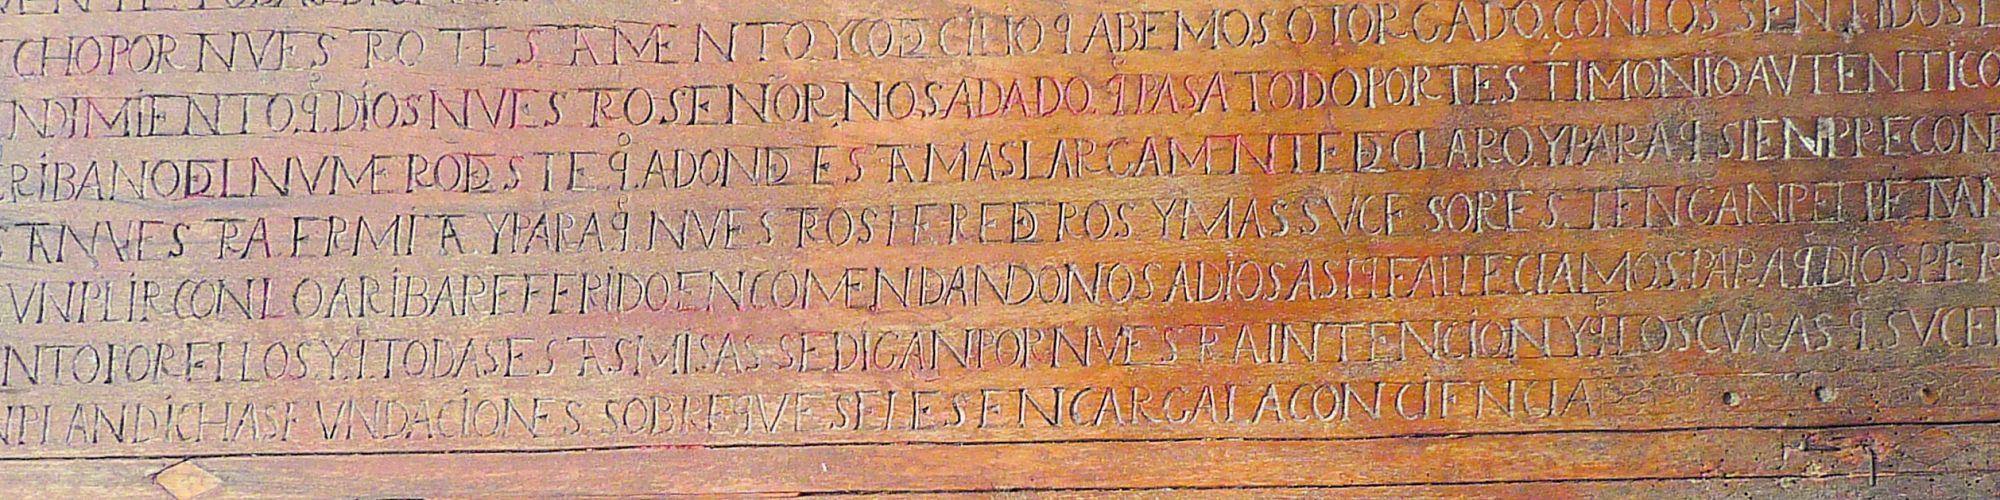 CHO POR NVESTRO TESTAMENTO Y CODECILIO Q ABEMOS OTORGADO CON LOS SENTIDOS
NDIMIENTO Q DIOS NVESTRO SEÑOR NOS A DADO Q PASA TODO POR TESTIMONIO AVTENTICO
CRIBANO DEL NVMERO DESTE Q ADONDE ESTA MAS LARGAMENTE DECLARO Y PARA Q SIENPRE CON
STA NVESTRA ERMITA Y PARA Q NVESTROS EREDEROS Y MAS SVCESORES TENGAN
VNPLIR CON LO ARIBA REFERIDO ENCOMENDANDONOS A DIOS ASI Q FALLECIAMOS PARA Q DIOS PER
NTO POR ELLOS Y Q TODAS ESTAS MISAS SE DIGAN POR NVESTRA INTENCION Y Q LOS CVRAS Q SVCE
NPLAN DICHAS FVNDACIONES SOBRE QVE SE LES ENCARGA LA CONCIENCIA